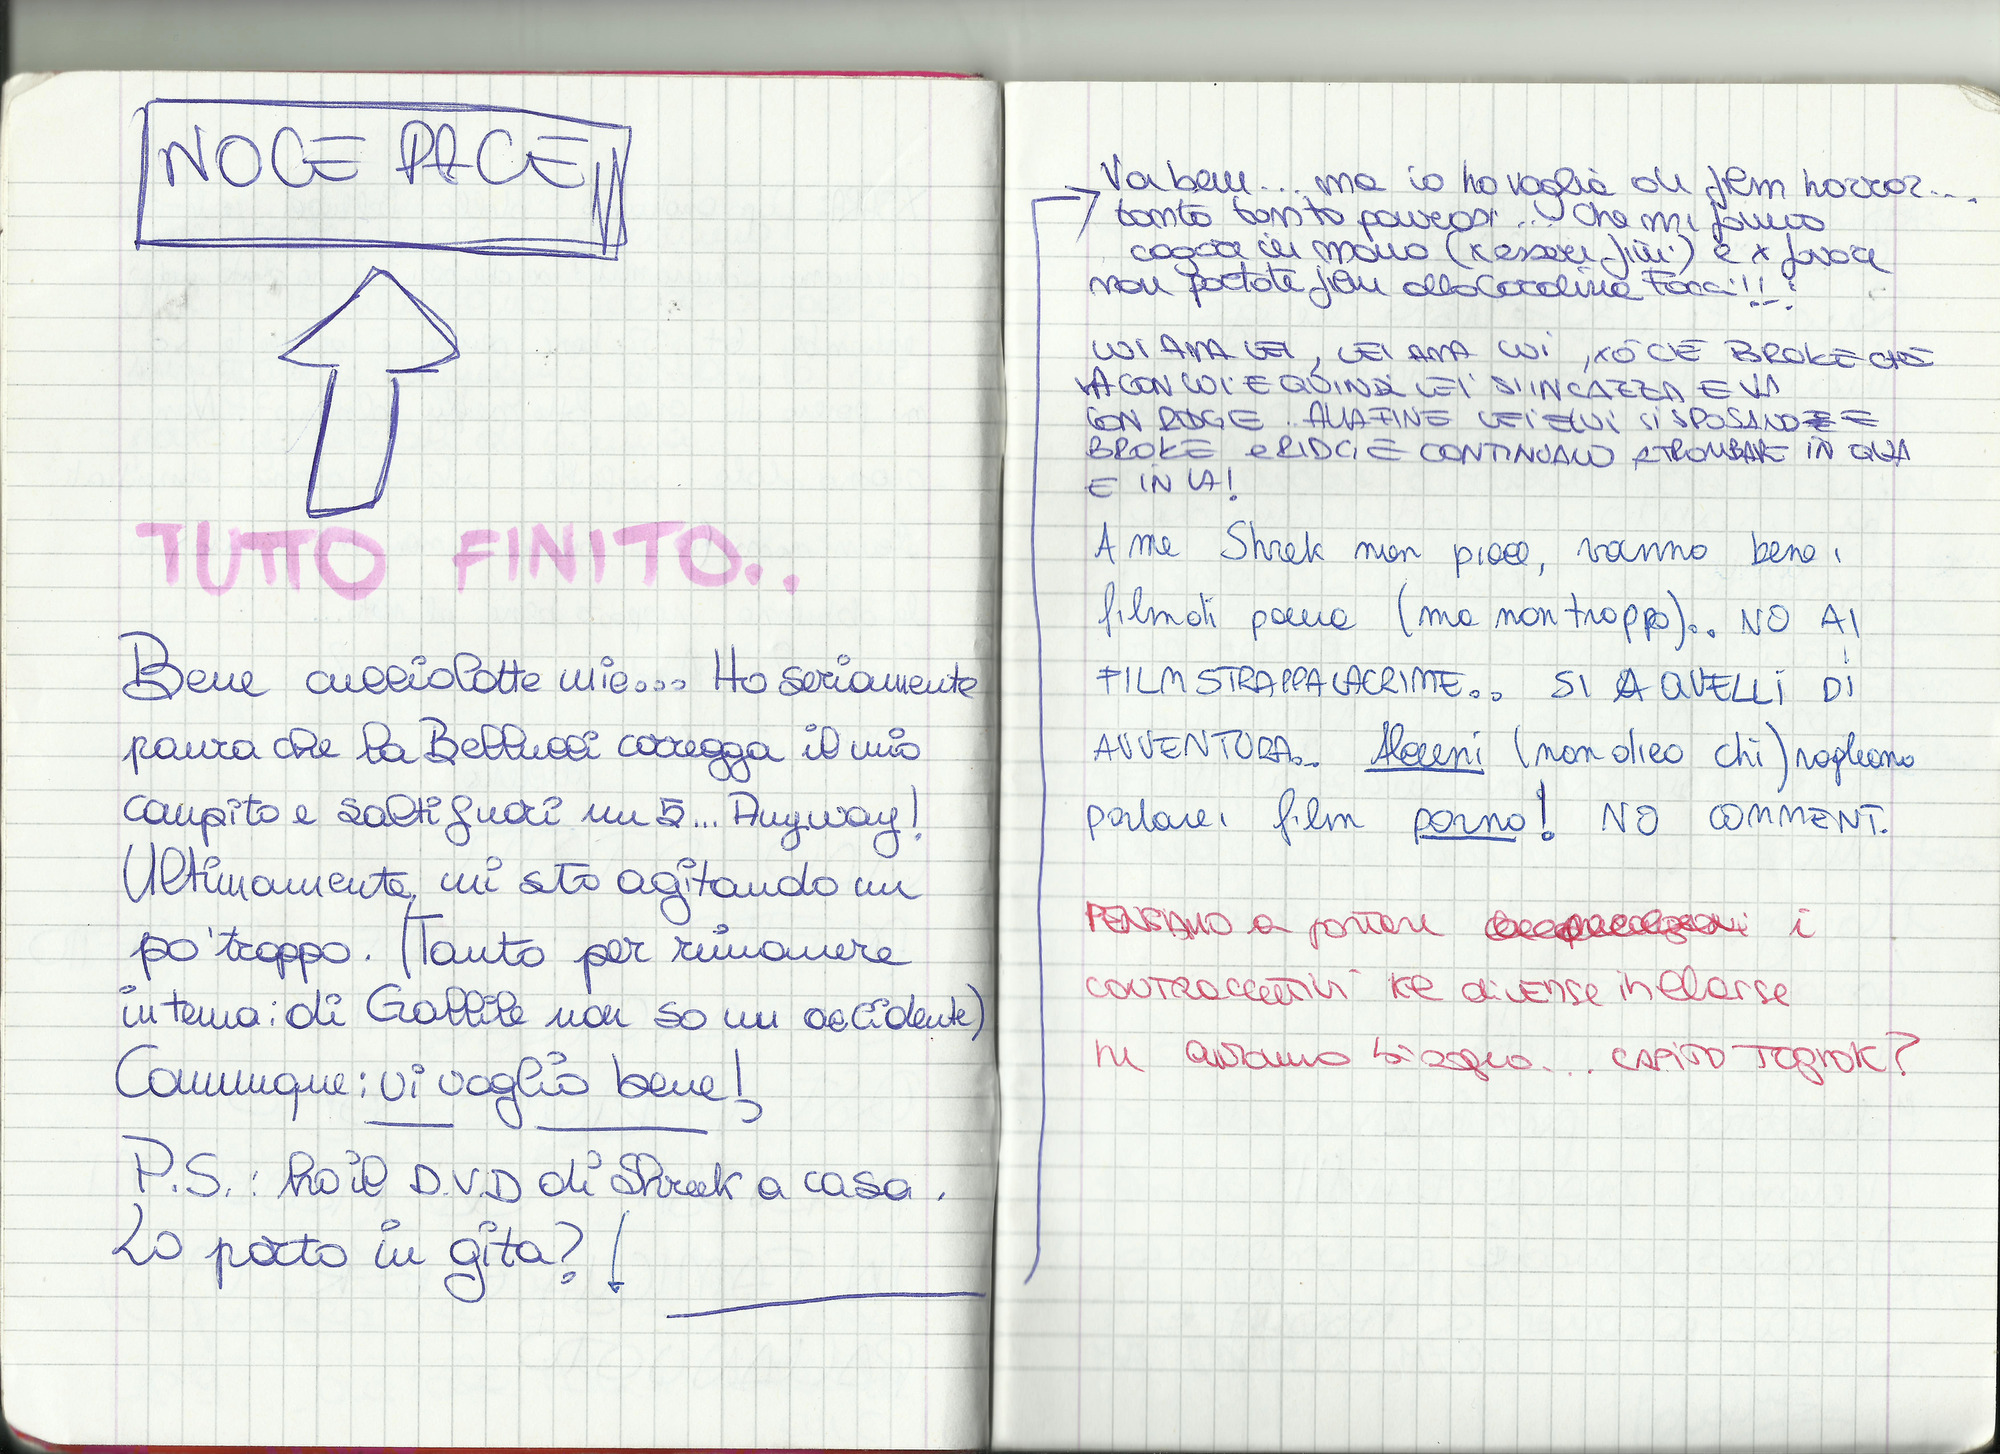 NOCE PACE
TUTTO FINITO..
Bene cucciolotte mie... Ho seriamente
paura che la Bellucci corregga il mio
compito e salti fuori un 5... Anyway!
Ultimamente mi sto agitando un
po' troppo. (Tanto per rimanere
in tema: di Galilei non so un accidente)
Comunque: vi voglio bene!
P.S.: ho il D.V.D di Shrek a casa.
Lo porto in gita?
Va bene... ma io ho voglia di film horror...
tanto tanto paurosi... Che mi fanno
cagare in mano (x essere fini) e x favore
non portate film alla Carolina !!!
LUI AMA LEI, LEI AMA LUI, XÒ C'È BROKE CHE
VA CON LUI E QUINDI LEI SI INCAZZA E VA
CON RIDGE. ALLA FINE LEI E LUI SI SPOSANO E
BROKE e RIDGE CONTINUANO A TROMBARE IN QUA
E IN LA!
A me Shrek non piace, vanno bene i
film di paura (ma non troppo).. NO AI
FILM STRAPPALACRIME.. SI A QUELLI DI
AVVENTURA.. Alcuni (non dico chi) vogliono
portare i film porno! NO COMMENT.
PENSIAMO a portare i
contraccettivi ke diverse in classe
ne abbiamo bisogno... CAPITO ?